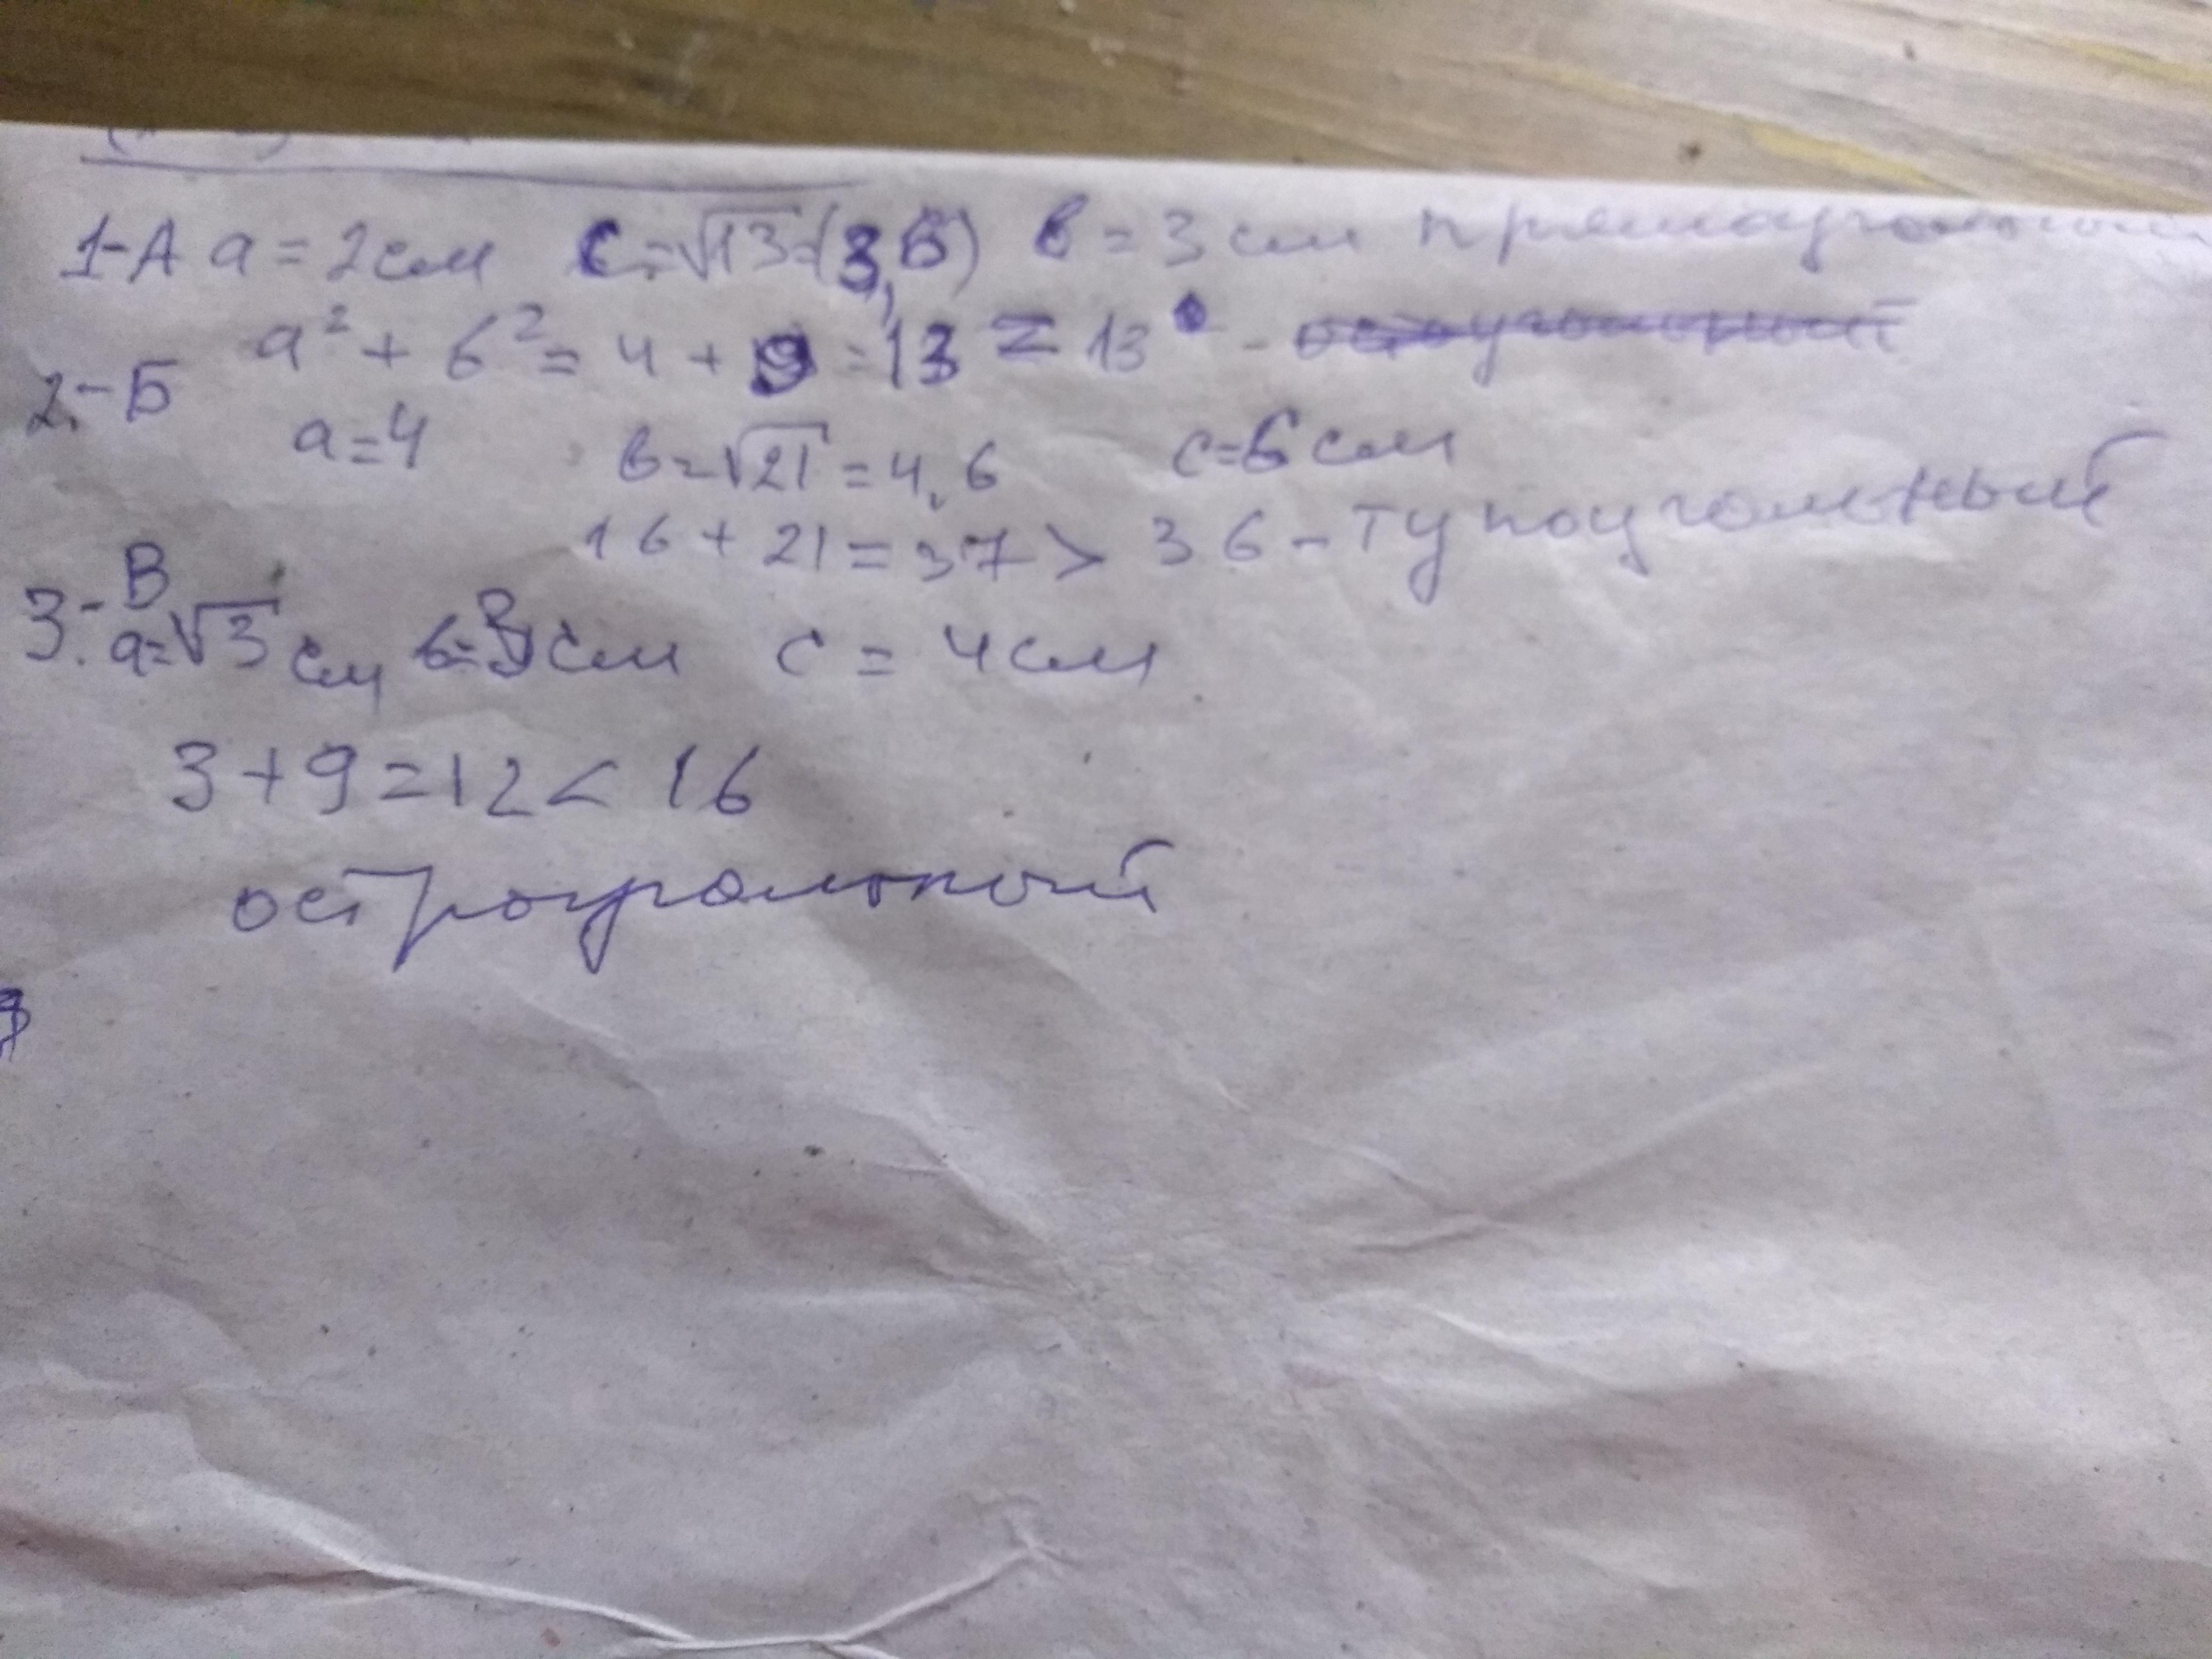 1-А а = 2см с = √13 = (3,6) в = 3 см прямоугольный
a² + б² = 4 + 9 = 13 = 13 -
2.-Б
а = 4 в = √21 = 4,6 с = 6 см
16 + 21 = 37 > 36 - тупоугольный
3.- В
а = √3 см б = 3 см с = 4 см
3 + 9 = 12 < 16
остроугольный